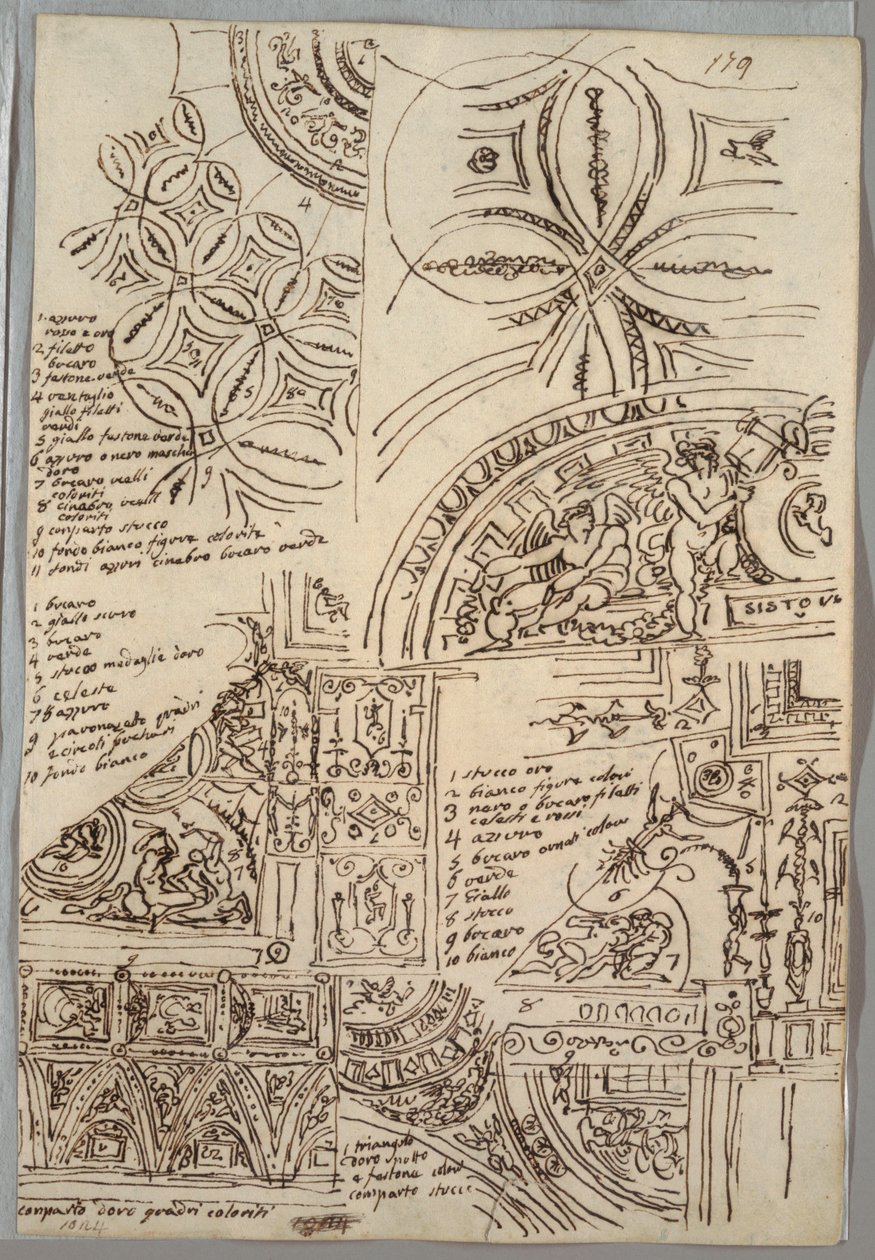 179
1 azuro
roso e oro
2 filetto
bucaro
3 festone verde
4 ventaglio
giallo filetti
verdi
5 giallo festone verde
6 azuro o nero maschere
doro
7 bucaro ucelli
coloriti
8 cinabro ucelli
coloriti
9 conparto stucco
10 fondo bianco figure colorite
11 fondi azuri cinabro bucaro verde
1 bucaro
2 giallo scuro
3 bucaro
4 verde
5 stucco medaglie doro
6 celeste
7 8 azzuro
9 pavonazetto quadri
e circoli
10 fondo bianco
SISTO V
1 stucco oro
2 bianco figure colori
3 nero o bucaro filetti
celesti e rossi
4 azzurro
5 bucaro ornati colori
6 verde
7 Giallo
8 stucco
9 bucaro
10 bianco
1 triangolo
doro sotto
e festone colori
comparto stucco
conparto doro quadri coloriti